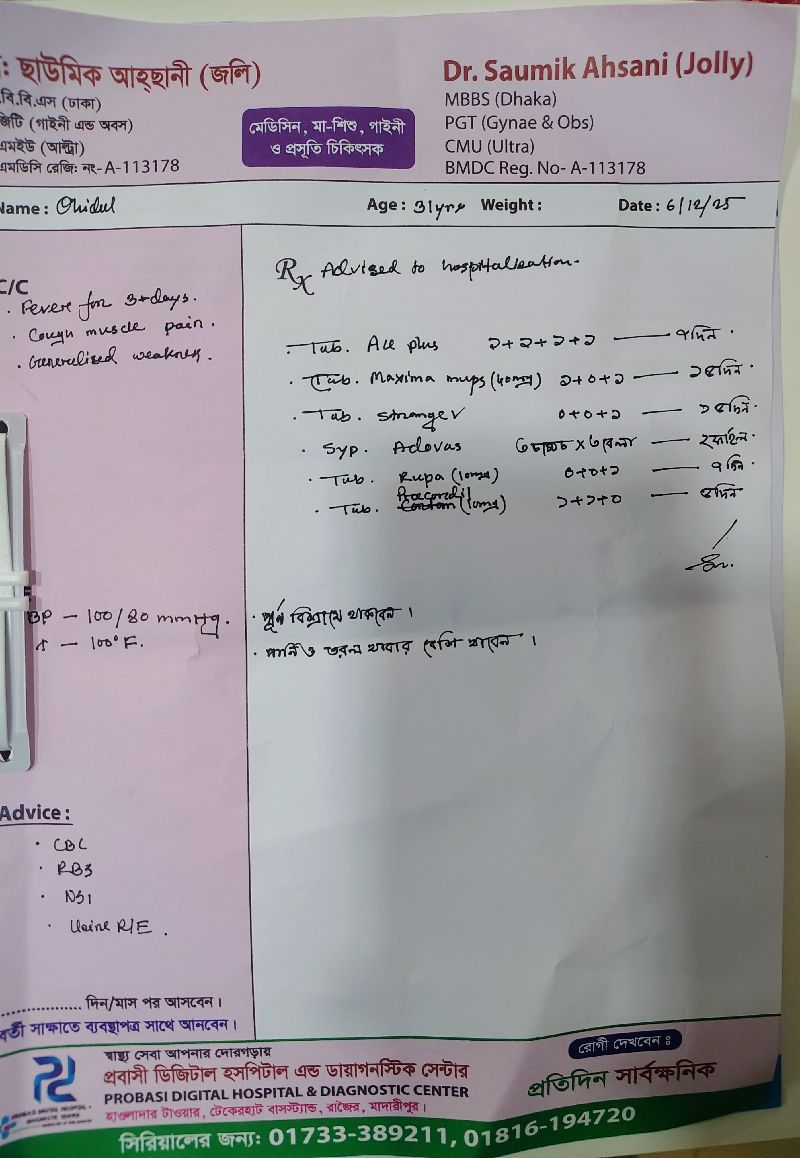 ছাউমিক আহ্‌ছানী (জলি)
বি.বি.এস (ঢাকা)
জিটি (গাইনী এন্ড অবস)
এমইউ (আল্ট্রা)
এমডিসি রেজিঃ নং-A-113178
মেডিসিন, মা-শিশু, গাইনী
ও প্রসূতি চিকিৎসক
Dr. Saumik Ahsani (Jolly)
MBBS (Dhaka)
PGT (Gynae & Obs)
CMU (Ultra)
BMDC Reg. No- A-113178
Name : Ohidul Age : 31yrs Weight : Date : 6/12/25
C/C
. Fever for 3+days.
. Cough muscle pain.
. Generalised weakness.
BP – 100/80 mmHg.
– 100°F.
Advice :
. CBC
. RBS
. NS1
. Urine R/E .
Rx Advised to hospitalisation.
. Tab. Ace plus ১+১+১+১ — ৭দিন .
. Tab. Maxima mups (40mg) ১+০+১ — ১৫দিন .
. Tab. ০+০+১ — ১৫দিন .
. Syp. Adovas ৩ চামচ x ৩ বেলা — ২ফাইল .
. Tab. Rupa (10mg) ০+০+১ — ৭ দিন
. Tab. (10mg) ১+১+০ — ৫দিন
. পূর্ন বিশ্রামে থাকবেন ।
. পানি ও তরল খাবার বেশি খাবেন ।
............... দিন/মাস পর আসবেন ।
বর্তী সাক্ষাতে ব্যবস্থাপত্র সাথে আনবেন ।
স্বাস্থ্য সেবা আপনার দোরগড়ায়
প্রবাসী ডিজিটাল হসপিটাল এন্ড ডায়াগনস্টিক সেন্টার
PROBASI DIGITAL HOSPITAL & DIAGNOSTIC CENTER
হাওলাদার টাওয়ার, টেকেরহাট বাসস্ট্যান্ড, রাজৈর, মাদারীপুর ।
রোগী দেখবেন :
প্রতিদিন সার্বক্ষনিক
সিরিয়ালের জন্য: 01733-389211, 01816-194720